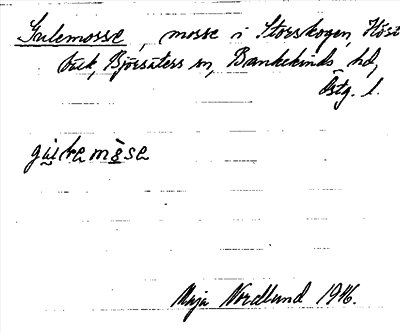 Gulemosse, mosse i Storskogen, Häst
bäck, Björsäters sn, Bankekinds hd,
Östg. l.
Maja Nordlund 1946.